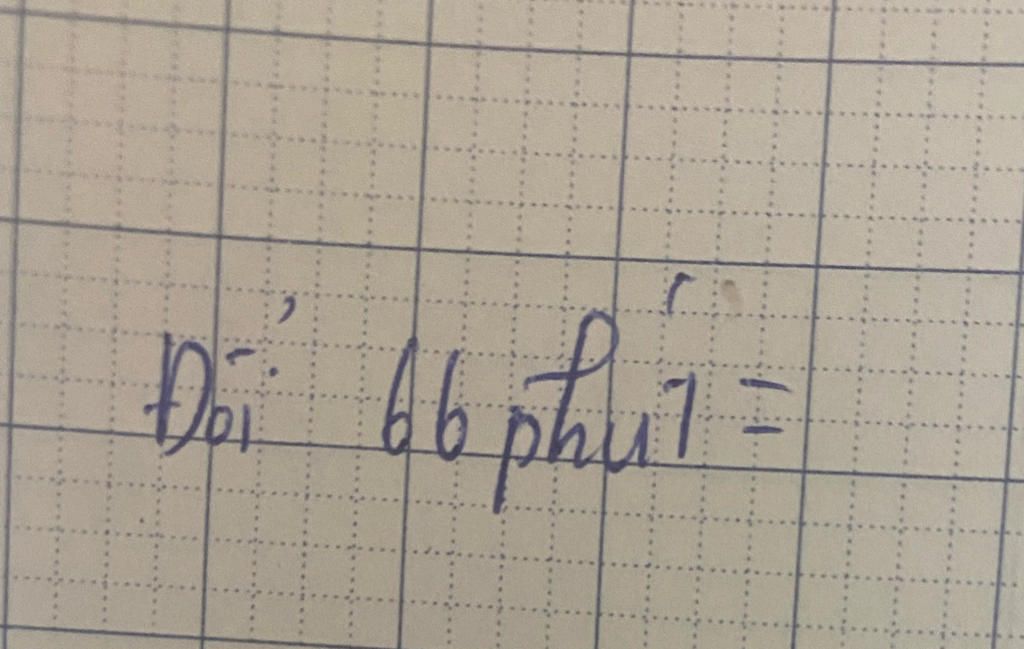 Đổi 66 phút =